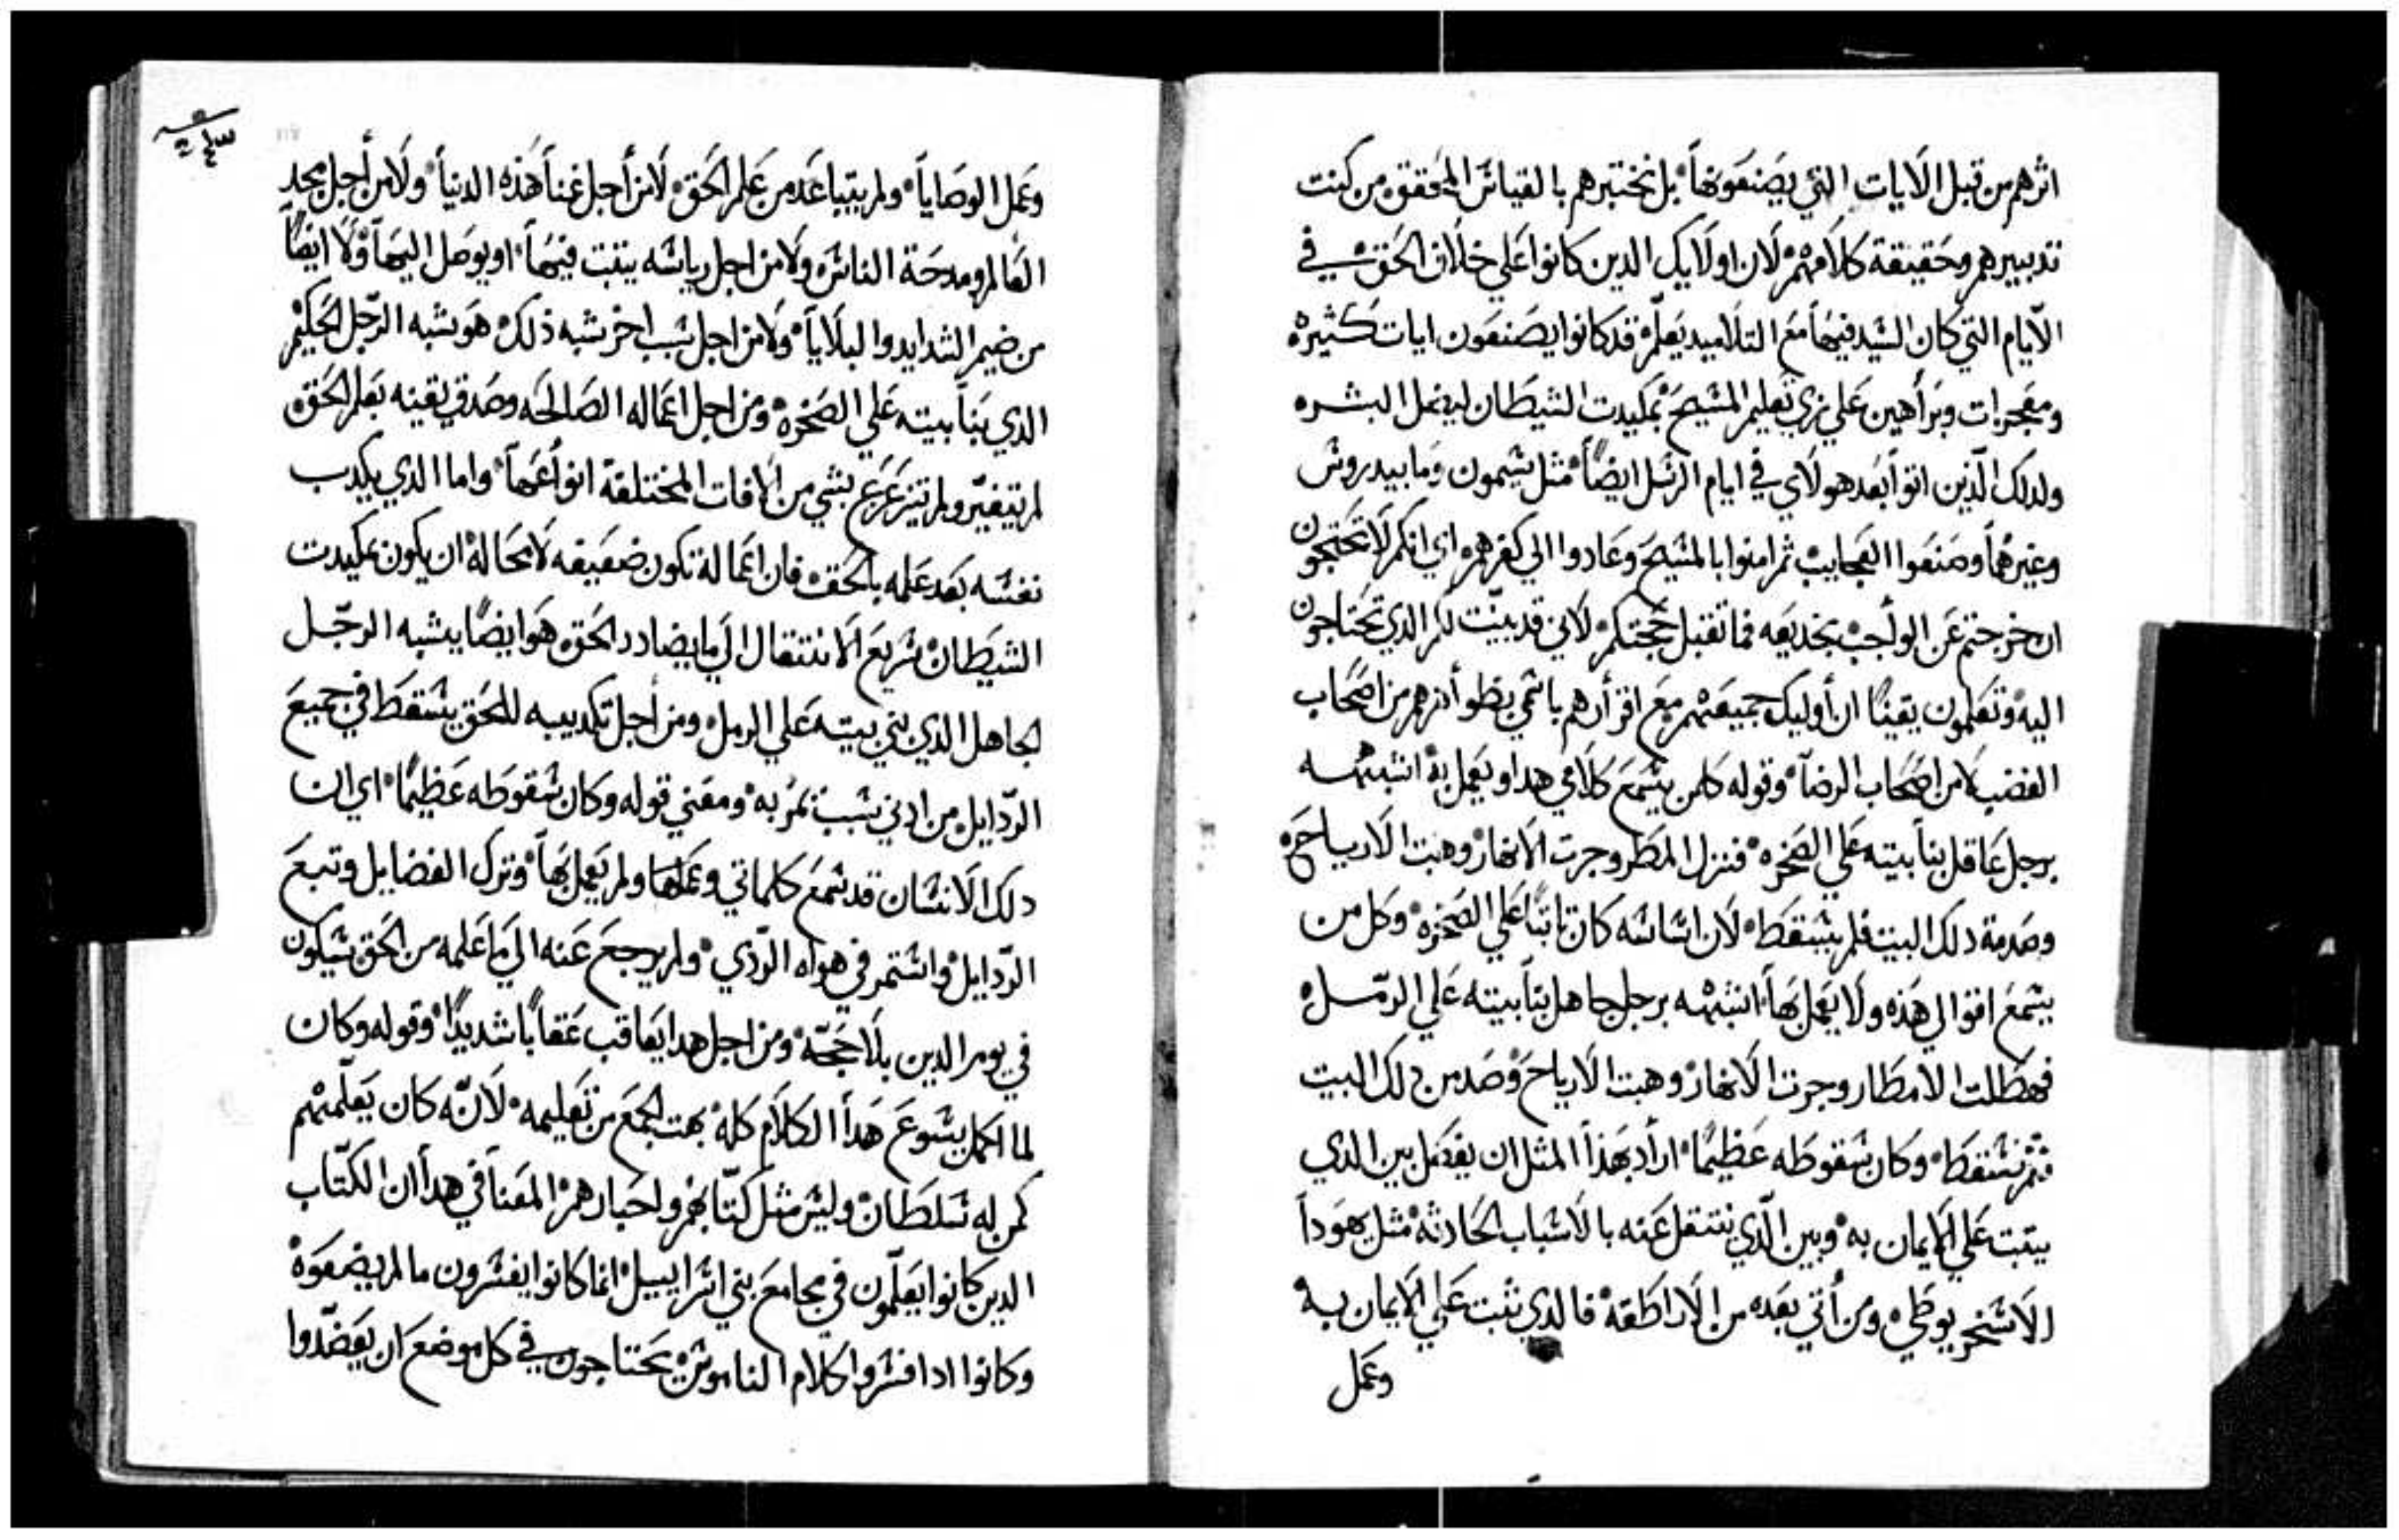 اثرهم من قبل الايات التي يصنعونها بل نختبرهم بالقياس المحقق من كنت
تدبيرهم وحقيقة كلامهم لان اولايك الدين كانوا علي خلاف الحق في
الايام التي كان السيد فيها مع التلاميد يعلم قد كانوا يصنعون ايات كثيره
ومعجزات وبراهين علي زي تعليم المسيح بمكيدت الشيطان ليضل البشر
ولدلك الذين اتوا بعد هولاي في ايام الرسل ايضًا مثل سيمون وما بيدروس
وغيرهما وصنعوا العجايب ثم امنوا بالمسيح وعادوا الي كفرهم اي انكم لا تحتجون
ان خرجتم عن الواجب بخديعه فما تقبل حجتكم لاني قد بينت لكم الدي تحتاجون
اليه وتعلمون يقينًا ان أوليك جميعهم مع اقرأرهم باسمي يظو أنهم من اصحاب
الغضب لا من اصحاب الرضا وقوله كلمن يسمع كلامي هدا ويعمل به اشبهه
برجل عاقل بنا بيته علي الصخره فنزل المطر وجرت الانهار وهبت الارياح
وصدمة دلك البيت فلم يسقط لان اساسه كان تابتًا علي الصخره وكل من
يسمع اقوالي هذه ولا يعمل بها اشبهه برجل جاهل بنا بيته علي الرمل
فهطلت الامطار وجرت الانهار وهبت الارياح وصدمن دلك البيت
فسقط وكان سقوطه عظيمًا اراد بهذا المثل ان يفصل بين الدي
يتبت علي الايمان به وبين الذي ينتقل عنه بالاسباب الحادثه مثل يهودا
الاسخريوطي ومن أتي بعده من الاراطقة فالدي ثبت علي الايمان به
وعمل
وعمل الوصايا ولم يتباعد من علم الحق لا من أجل غنا هذه الدنيا ولا من أجل مجد
العالم ومدحة الناس ولا من اجل رياسه يتبت فيها او يوصل اليها ولا ايضًا
من ضيم الشدايد والبلايا ولا من اجل سبب اخر شبه ذلك هو يشبه الرجل الحكيم
الدي بنا بيته علي الصخره ومن اجل اعماله الصالحه وصدق يقينه بعلم الحق
لم يتغير ولم يتزعزع بشي من الافات المختلفة انواعها واما الدي يكدب
نفسه بعد علمه بالحق فان اعماله تكون ضعيفه لا محالة ان يكون بمكيدت
الشيطان سريع الانتقال الي ما يضادد الحق هو ايضًا يشبه الرجل
الجاهل الدي بني بيته علي الرمل ومن أجل تكديبه للحق يسقط في جميع
الردايل من ادني سبب يمر به ومعني قوله وكان سقوطه عظيمًا اي ان
دلك الانسان قد سمع كلماتي وعلمها ولم يعمل بها وترك الفضايل وتبع
الردايل واستمر في هواه الردي ولم يرجع عنه الي ما علمه من الحق سيكون
في يوم الدين بلا حجة ومن اجل هدا يعاقب عقابًا شديدًا وقوله وكان
لما اكمل يسوع هدا الكلام كله بهت الجمع من تعليمه لانه كان يعلمهم
كمن له سلطان وليس مثل كتابهم واحبارهم المعنا في هدا ان الكتاب
الدين كانوا يعلمون في مجامع بني اسراييل انما كانوا يفسرون ما لم يضعوه
وكانوا ادا فسروا كلام الناموس يحتاجون في كل موضع ان يعضدوا